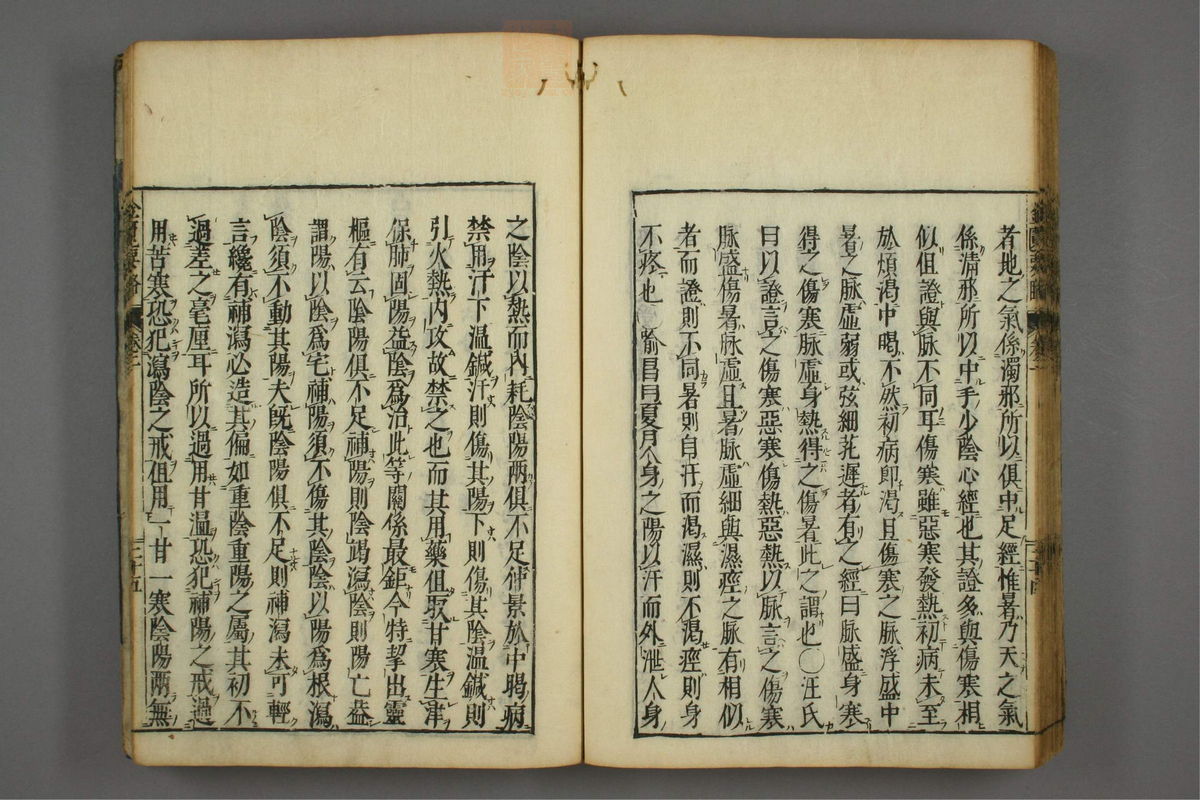 者地之氣係濁邪所以俱中足經惟暑乃天之氣
係清邪所以中手少陰心經也其證多與傷寒相
似但證與脉不同耳傷寒雖惡寒發熱初病未至
於煩渴中暍不然初病即渴且傷寒之脉浮盛中
暑之脉虛弱或弦細芤遲者有之經曰脉盛身寒
得之傷寒脉虛身熱得之傷暑此之謂也〇汪氏
曰以證言之傷寒惡寒傷熱惡熱以脉言之傷寒
脉盛傷暑脉虛且暑脉虛細與濕痙之脉有相似
者而證則不同暑則自汗而渴濕則不渴痙則身
不疼也〇喻昌曰夏月人身之陽以汗而外泄人身
之陰以熱而內耗陰陽兩俱不足仲景於中暍病
禁用汗下温鍼汗則傷其陽下則傷其陰温鍼則
引火熱內攻故禁之也而其用藥但取甘寒生津
保肺固陽益陰爲治此等關係最鉅今特挈出靈
樞有云陰陽俱不足補陽則陰竭瀉陰則陽亡蓋
謂陽以陰爲宅補陽須不傷其陰陰以陽爲根瀉
陰須不動其陽夫既陰陽俱不足則補瀉未可輕
言纔有補瀉必造其偏如重陰重陽之屬其初不
過差之毫厘耳所以過用甘温恐犯補陽之戒過
用苦寒恐犯瀉陰之戒但用一甘一寒陰陽兩無